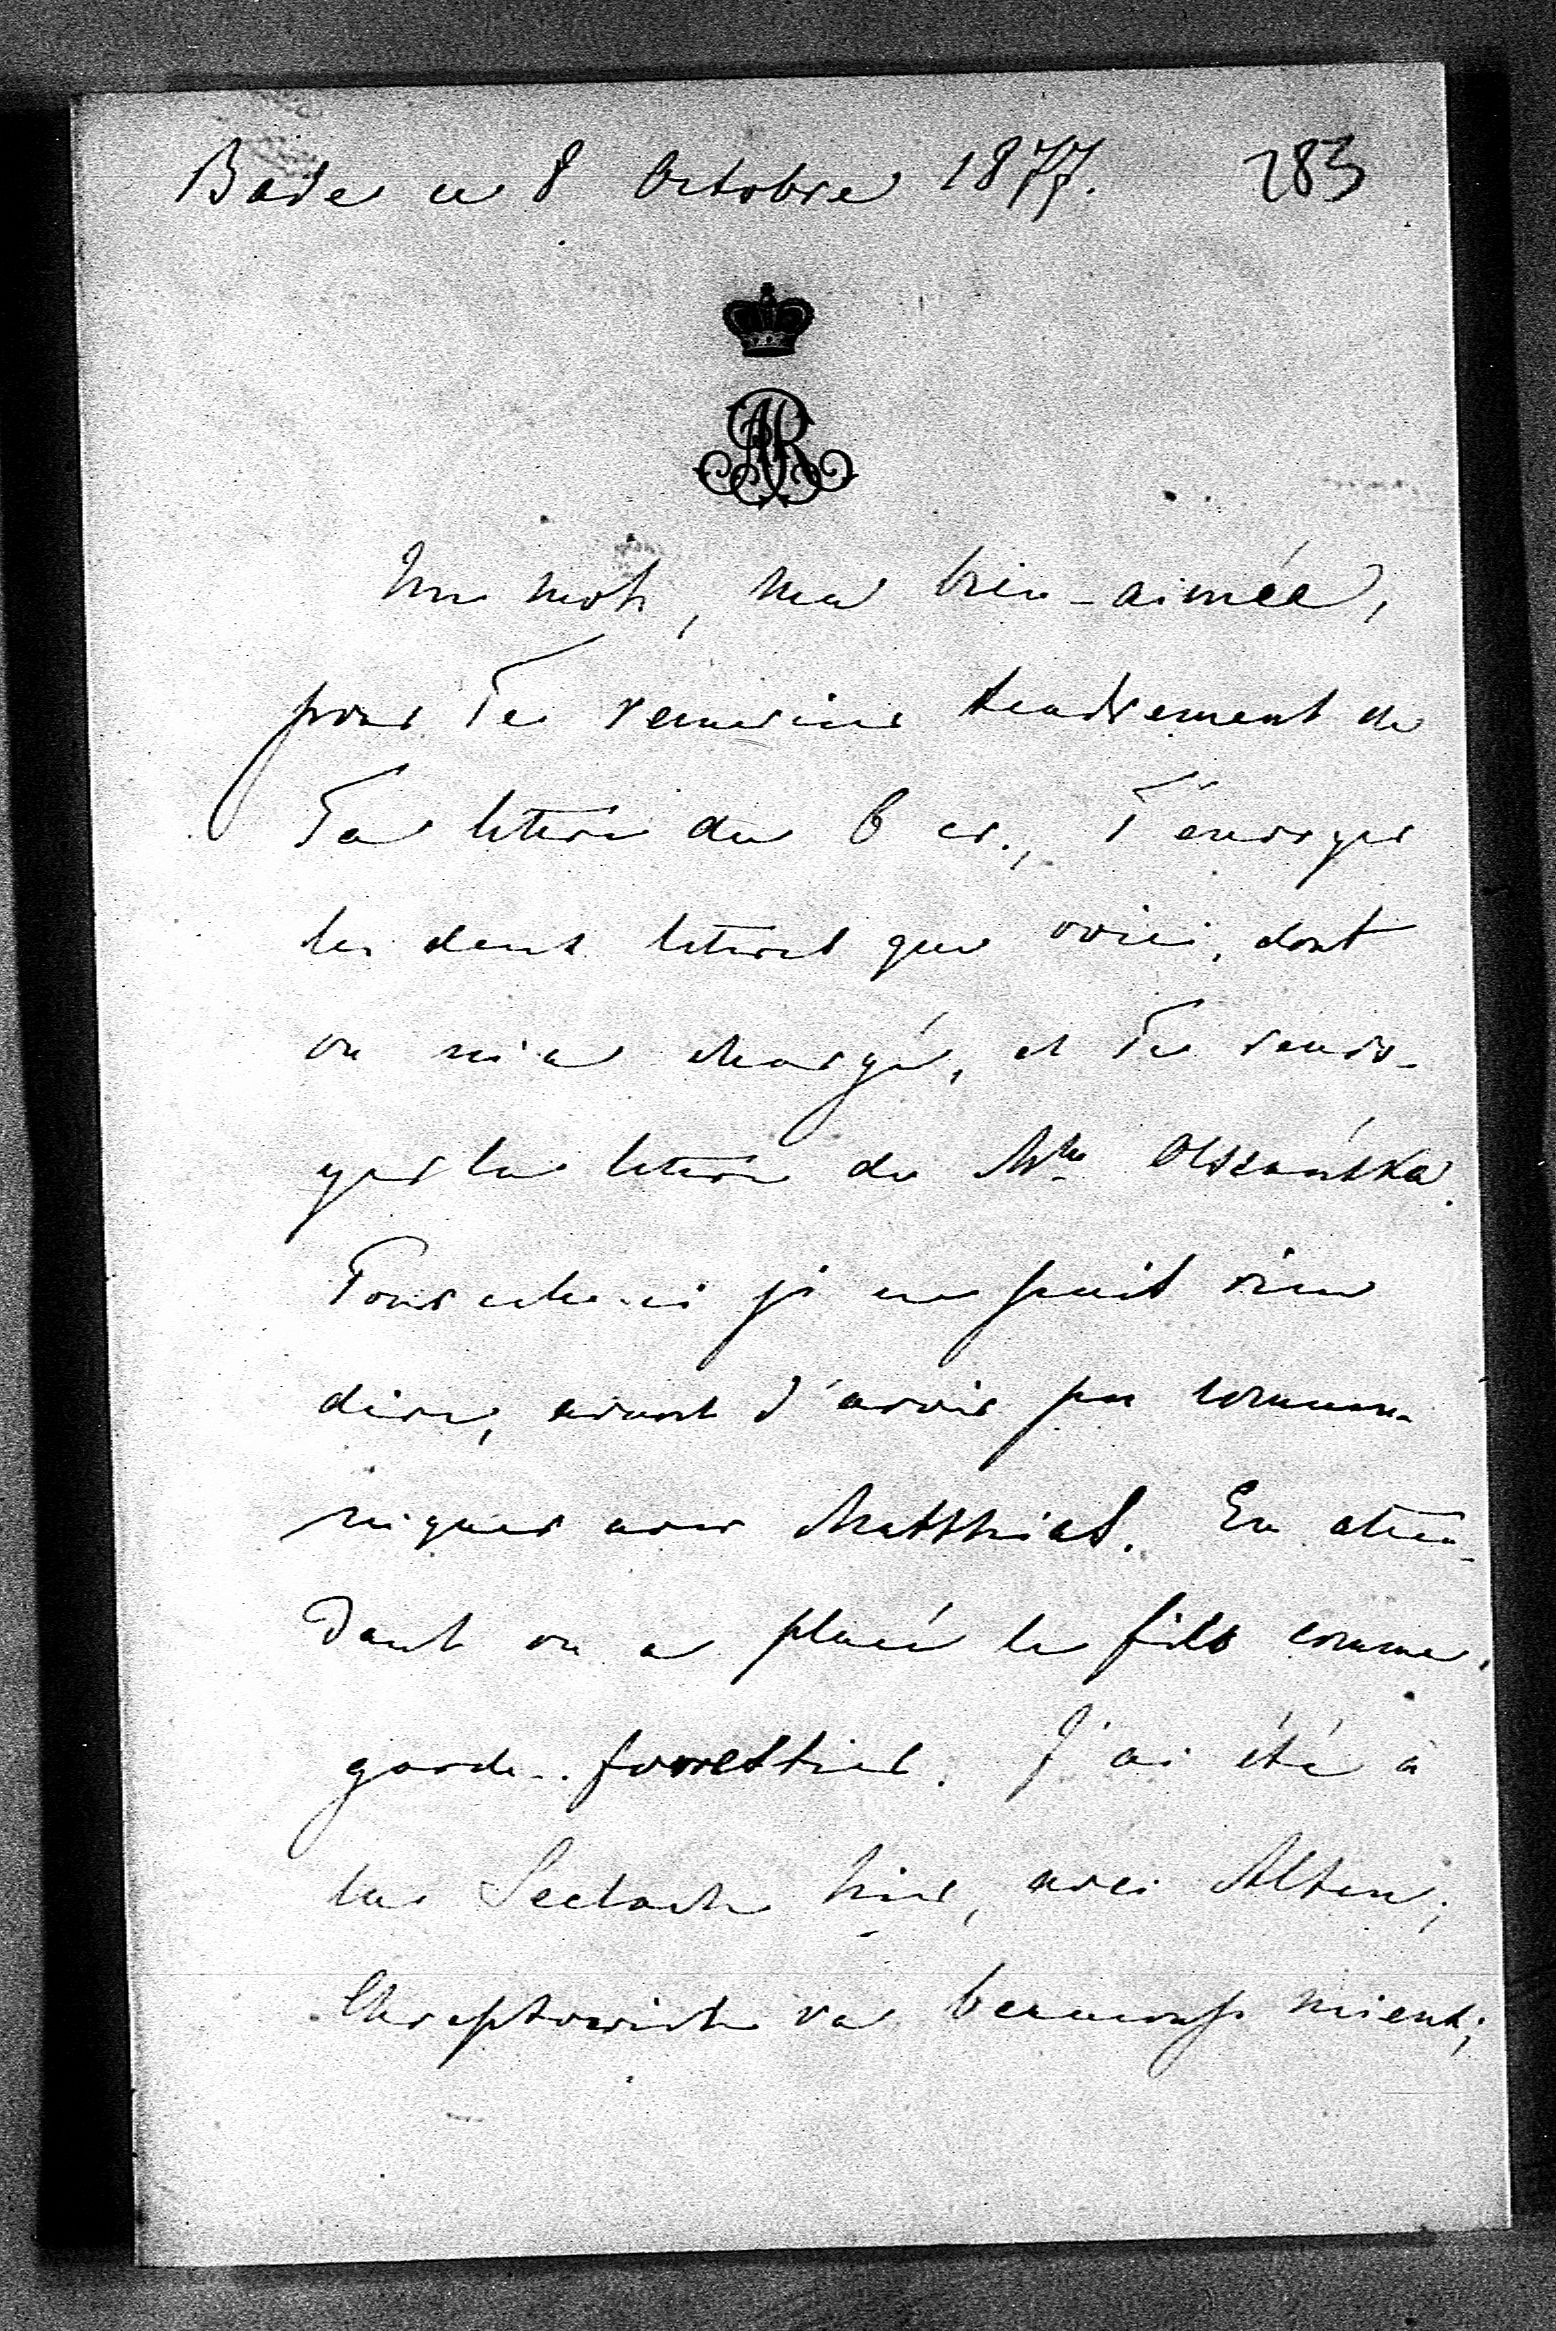 Bade ce 8 Octobre 1877. 283
AR
Un mot, ma bien-aimée,
pour Te remercier tendrement de
Ta lettre du 6 cr., T'envoyer
les deux lettres que voici, dont
on m'a chargé, et Te renvo-
yer la lettre de Mme Olszańska.
Pour celle-ci je ne puis rien
dire, avant d'avoir pu commu-
niquer avec Matthias. En atten-
dant on a placé le fils comme
garde-forrestier. J'ai été à
hier, avec Alten;
Chreptowich va beaucoup mieux;